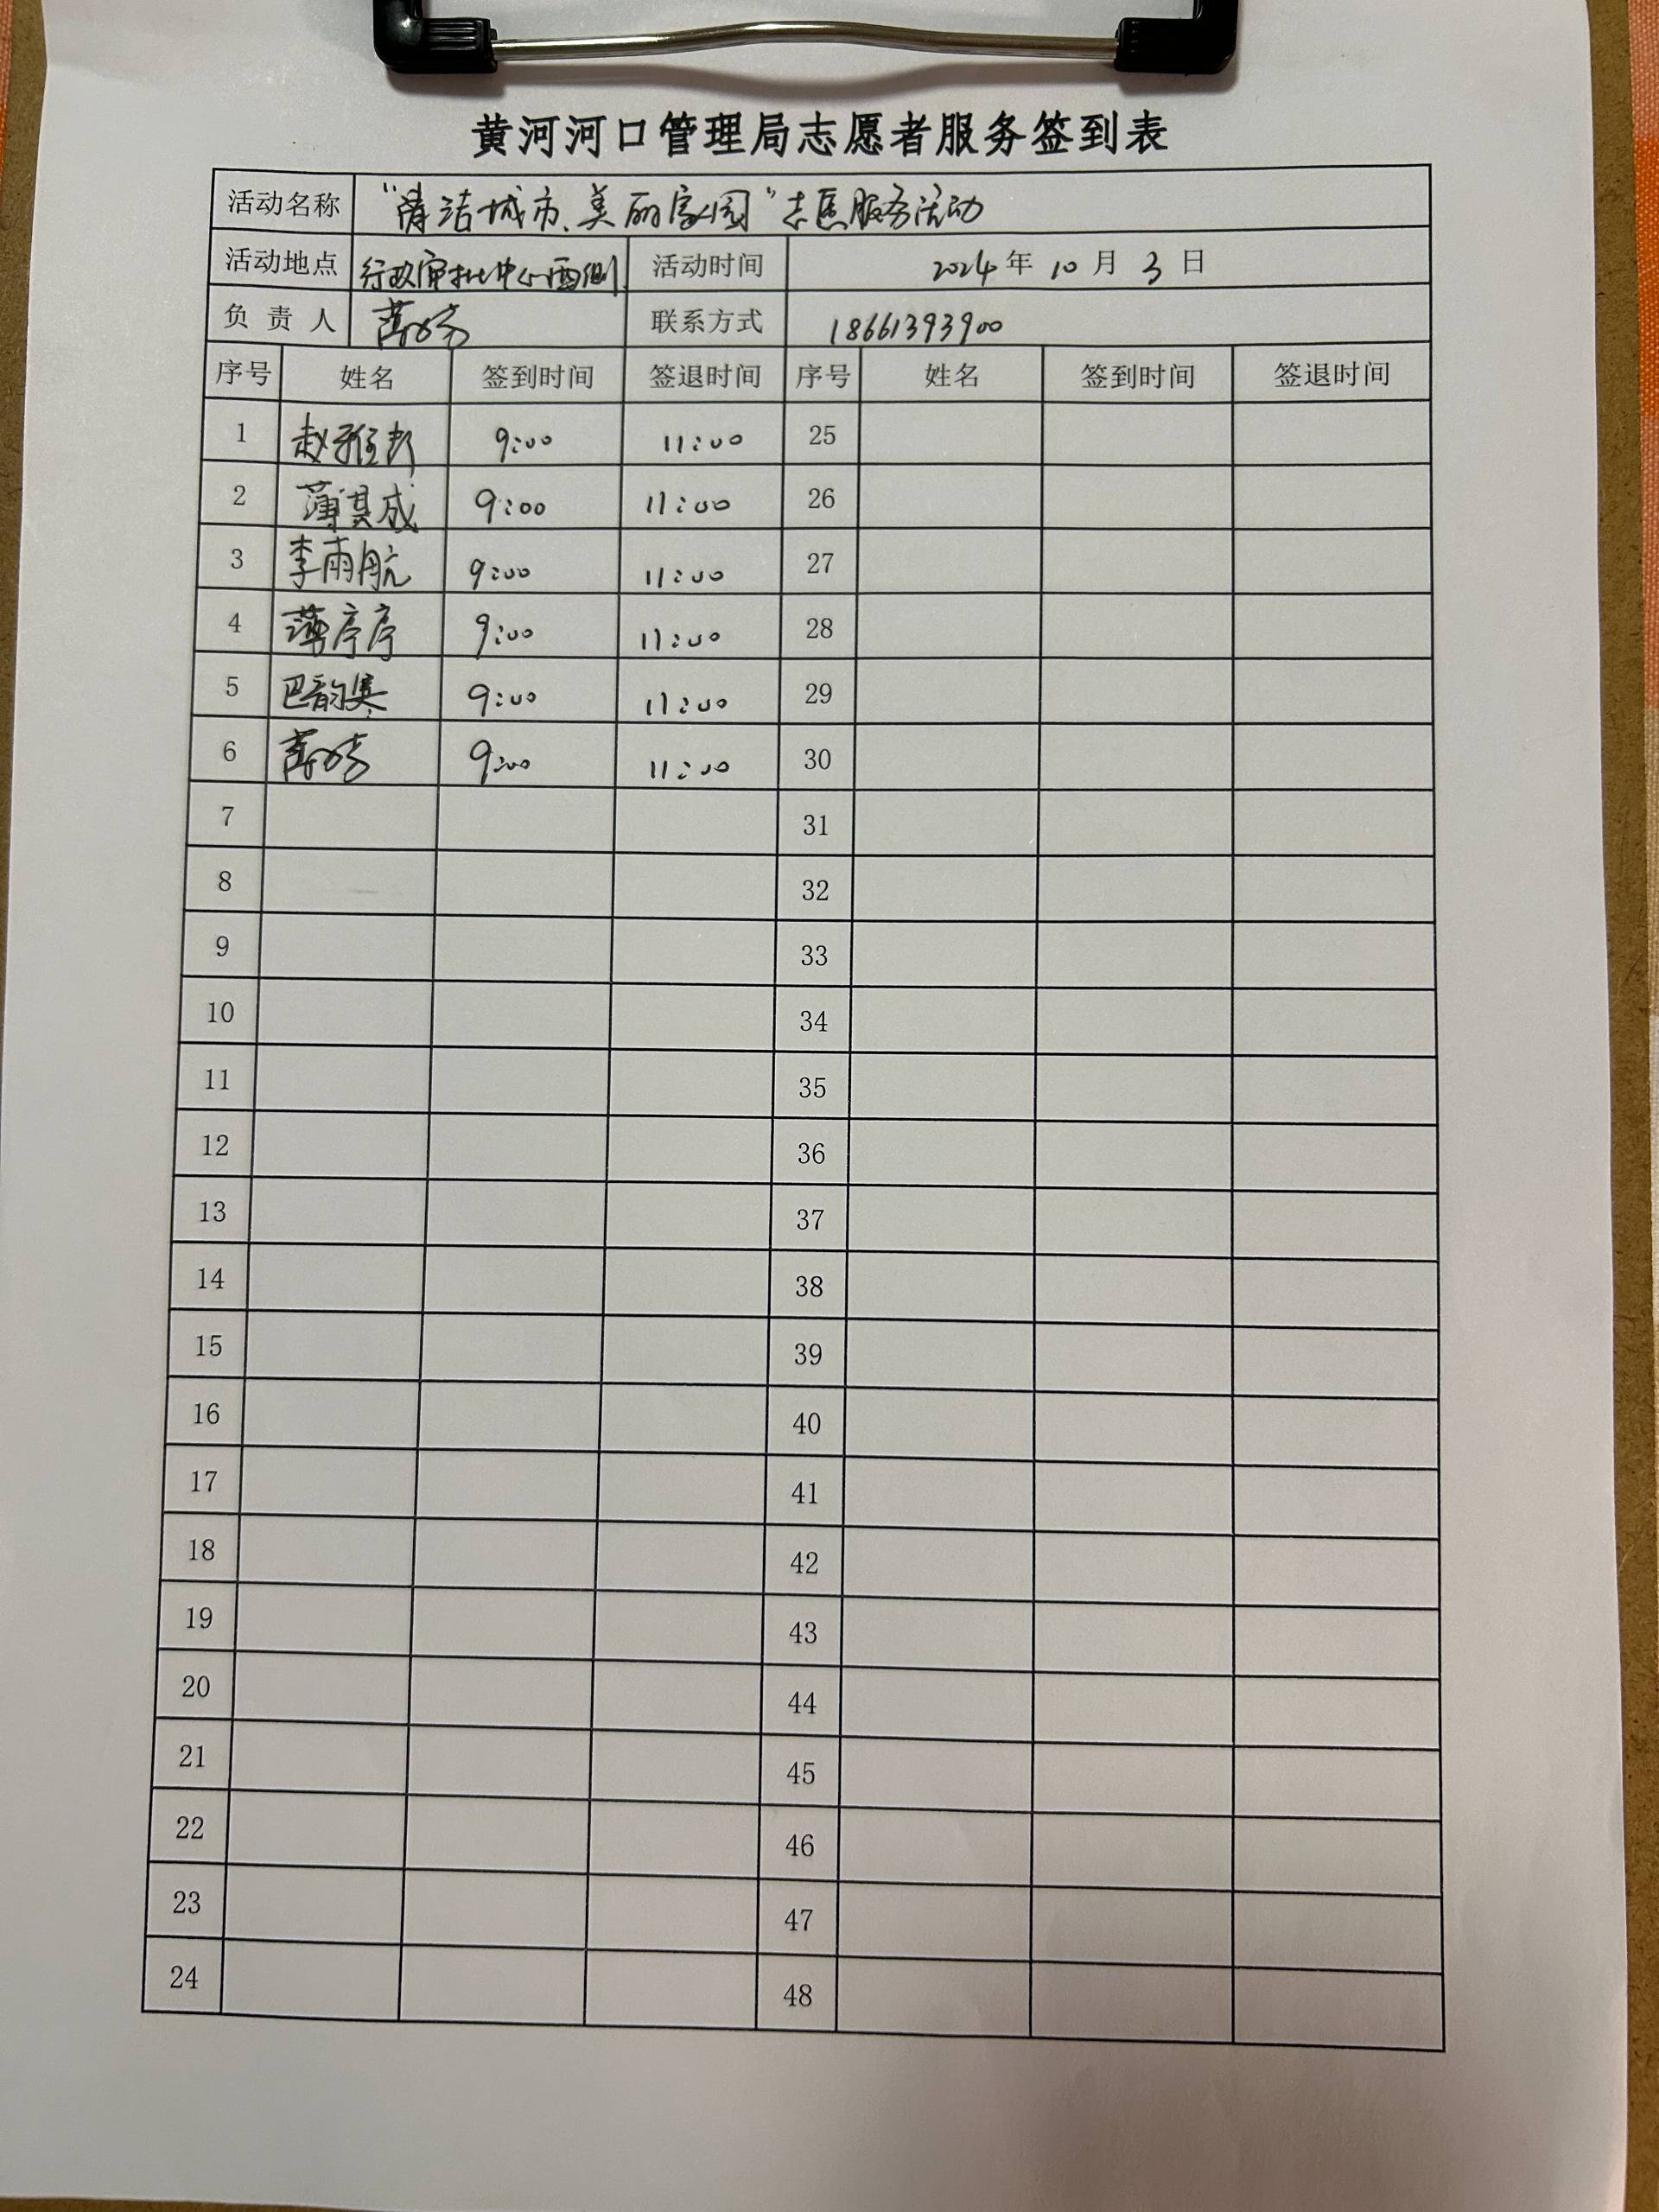 黄河河口管理局志愿者服务签到表
活动名称 “清洁城市、美丽家园”志愿服务活动
活动地点 行政审批中心西侧 活动时间 2024年10月3日
负责人 联系方式 18661393900
序号 姓名 签到时间 签退时间 序号 姓名 签到时间 签退时间
1 赵雅 9:00 11:00 25
2 薄其成 9:00 11:00 26
3 李雨航 9:00 11:00 27
4 薄亭序 9:00 11:00 28
5 巴韵寒 9:00 11:00 29
6 9:00 11:00 30
7 31
8 32
9 33
10 34
11 35
12 36
13 37
14 38
15 39
16 40
17 41
18 42
19 43
20 44
21 45
22 46
23 47
24 48